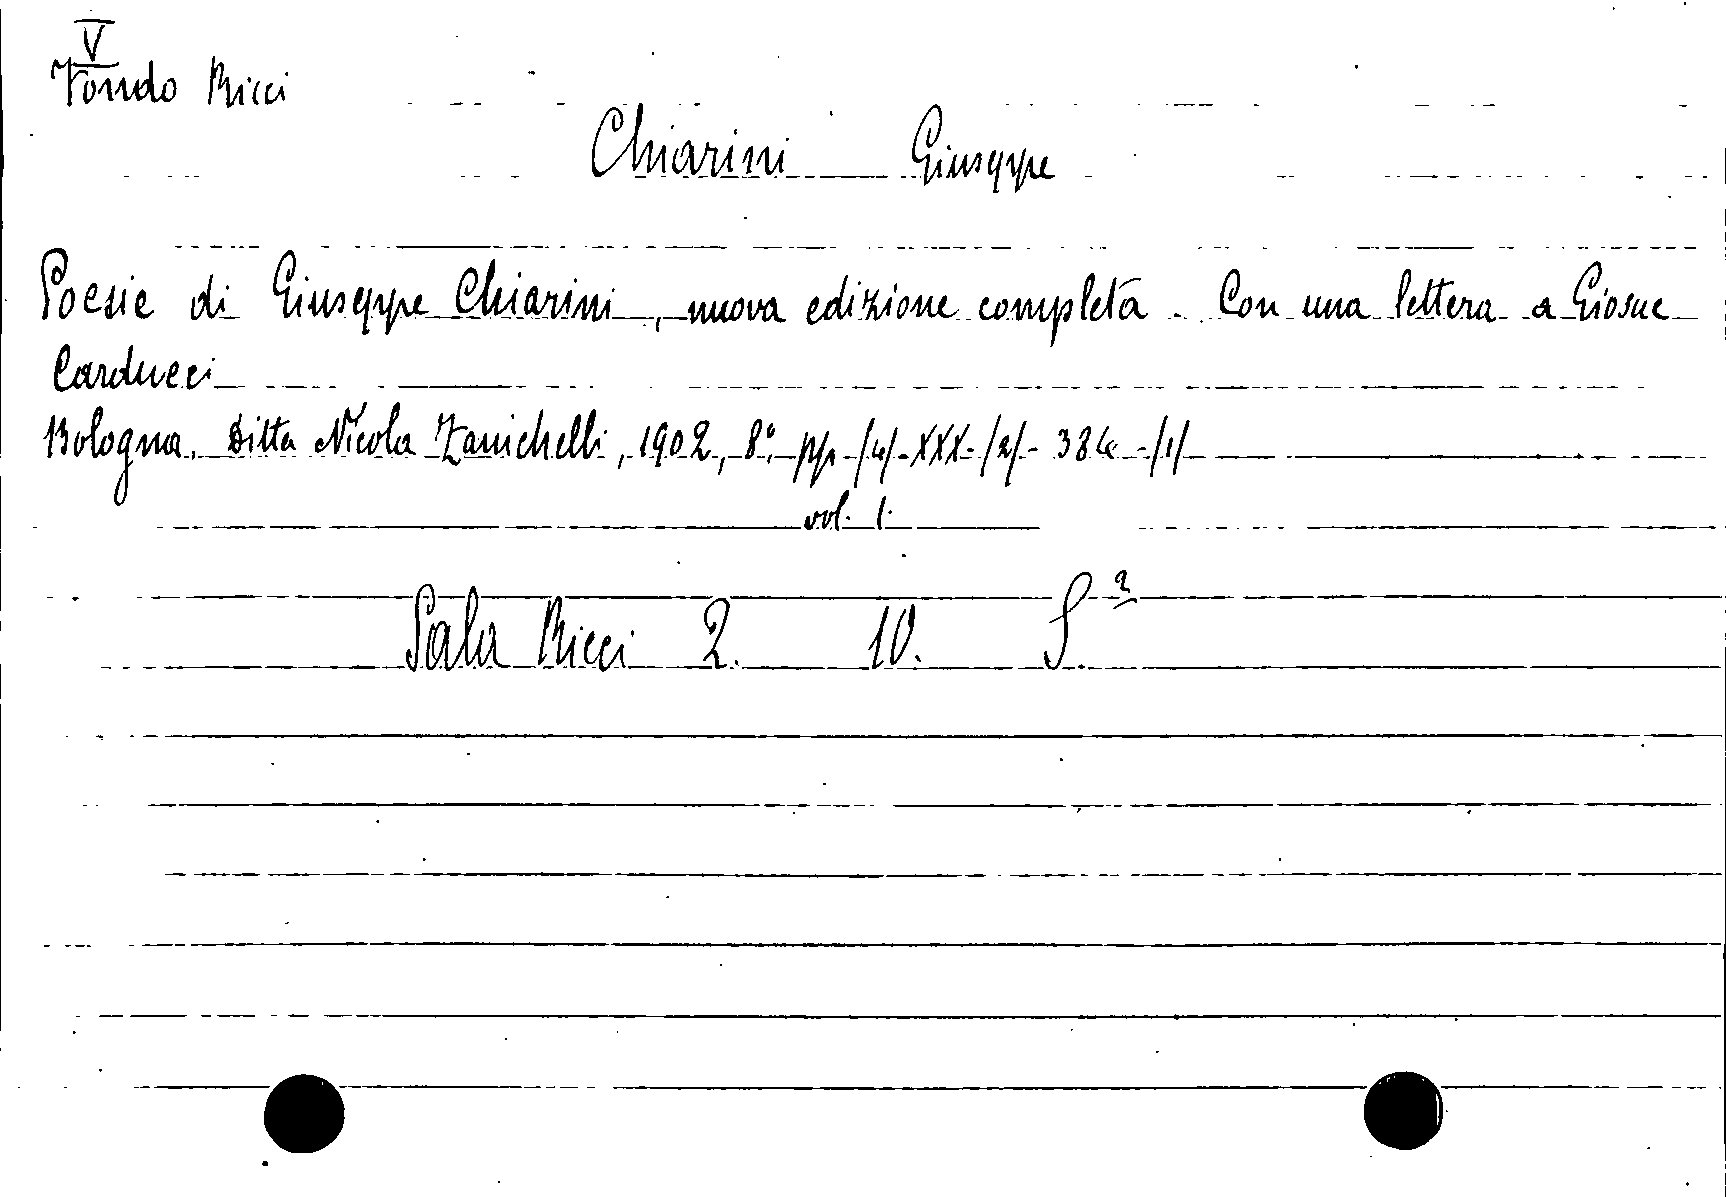 V
Fondo Ricci
Chiarini Giuseppe
Poesie di Giuseppe Chiarini, nuova edizione completa. Con una lettera a Giosue
Carducci
Bologna. Ditta Nicola Zanichelli, 1902, 8°, pp. /4/-XXX-/2/- 384 -/1/
vol. 1.
Sala Ricci 2. 10. S.²